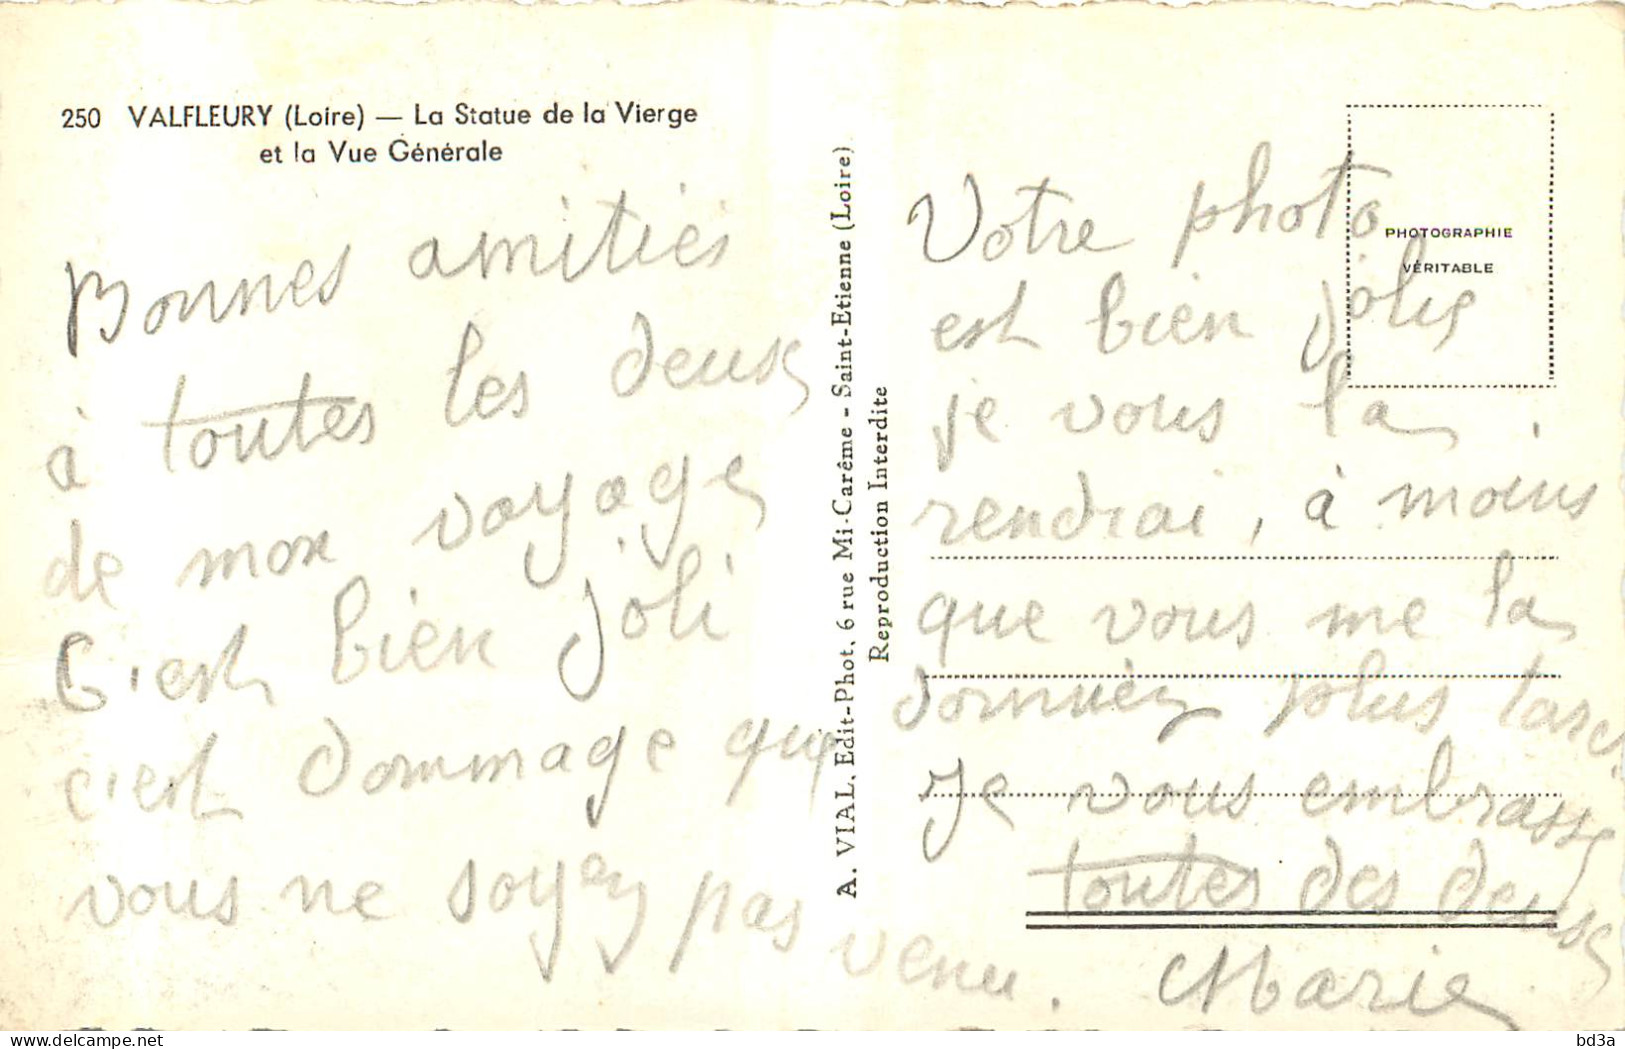 250 VALFLEURY (Loire) — La Statue de la Vierge
et la Vue Générale
Bonnes amitiés
à toutes les deux
de mon voyage
C'est bien joli
c'est dommage que
vous ne soyez pas venu.
A. VIAL, Edit-Phot. 6 rue Mi-Carême - Saint-Etienne (Loire)
Reproduction Interdite
PHOTOGRAPHIE
VÉRITABLE
Votre photo
est bien jolie
je vous la
rendrai, à moins
que vous me la
donniéz plus tard.
Je vous embrasse
toutes des deux
Marie
delcampe.net
bd3a